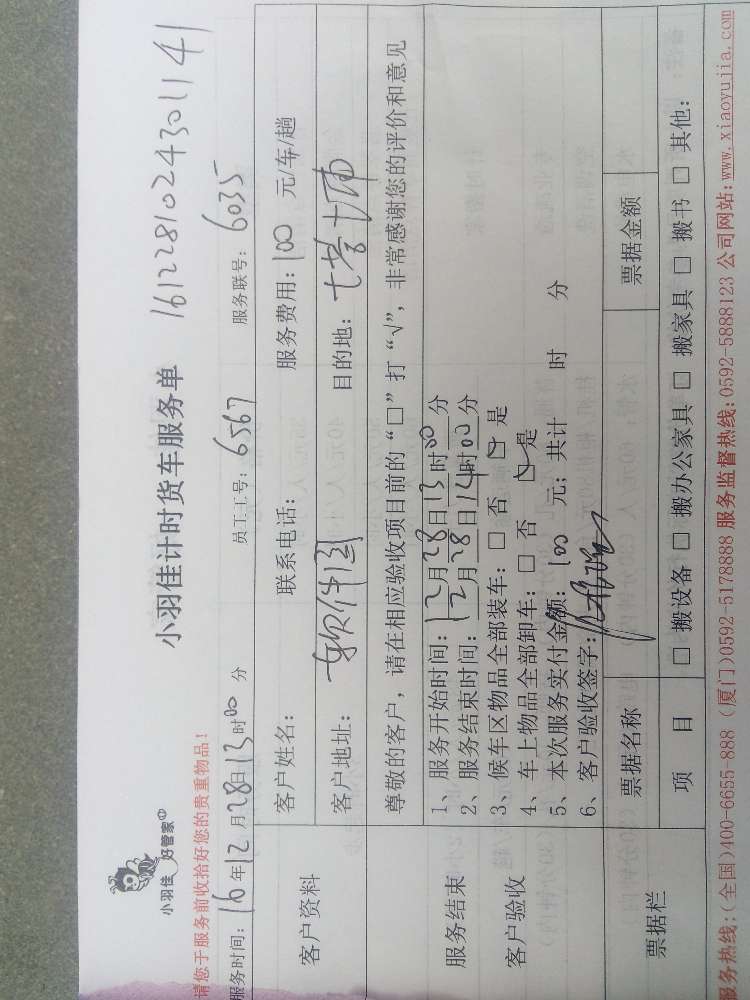 小羽佳 好管家
小羽佳计时货车服务单 1612281024301141
请您于服务前收拾好您的贵重物品！
服务时间：16年12月28日13时00分 员工工号：6567 服务联号：6035
客户资料
客户姓名： 联系电话： 服务费用：100 元/车/趟
客户地址：软件园 目的地：七营七师
服务结束
客户验收
尊敬的客户，请在相应验收项目前的“□”打“√”，非常感谢您的评价和意见
1、服务开始时间：12月28日13时00分
2、服务结束时间：12月28日14时00分
3、候车区物品全部装车：□ 否 ☑ 是
4、车上物品全部卸车：□ 否 ☑ 是
5、本次服务实付金额：100 元；共计 时 分
6、客户验收签字：
票据栏
票据名称 票据金额
项 目 □ 搬设备 □ 搬办公家具 □ 搬家具 □ 搬书 □ 其他：
服务热线：(全国)400-6655-888 (厦门)0592-5178888 服务监督热线：0592-5888123 公司网站：www.xiaoyujia.com